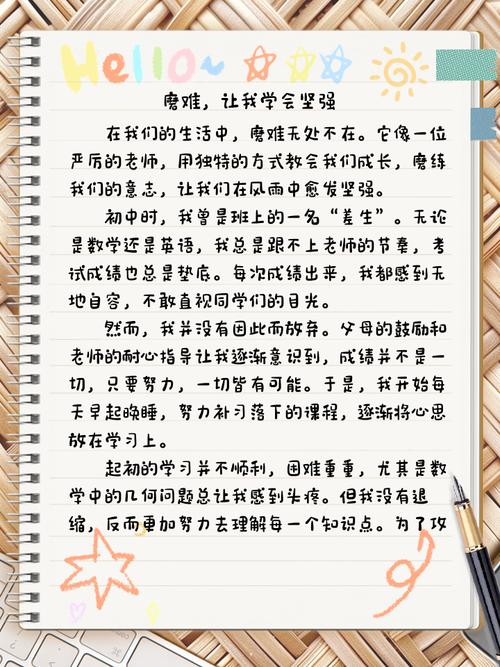 Hello~
磨难，让我学会坚强
在我们的生活中，磨难无处不在。它像一位
严厉的老师，用独特的方式教会我们成长，磨练
我们的意志，让我们在风雨中愈发坚强。
初中时，我曾是班上的一名“差生”。无论
是数学还是英语，我总是跟不上老师的节奏，考
试成绩也总是垫底。每次成绩出来，我都感到无
地自容，不敢直视同学们的目光。
然而，我并没有因此而放弃。父母的鼓励和
老师的耐心指导让我逐渐意识到，成绩并不是一
切，只要努力，一切皆有可能。于是，我开始每
天早起晚睡，努力补习落下的课程，逐渐将心思
放在学习上。
起初的学习并不顺利，困难重重，尤其是数
学中的几何问题总让我感到头疼。但我没有退
缩，反而更加努力去理解每一个知识点。为了攻